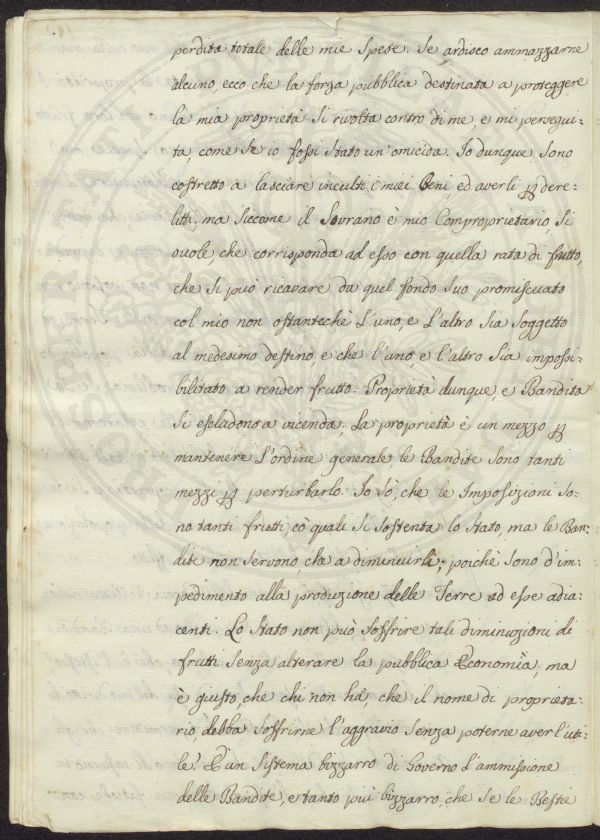 perdita totale delle mie Spese. Se ardisco ammazzarne
alcuno, ecco che la forza pubblica destinata a proteggere
la mia proprietà Si rivolta contro di me, e mi persegui-
ta, come Se io fossi Stato un'omicida. Io dunque Sono
costretto a lasciare inculti i miei Beni, ed averli ꝑ dere-
litti, ma Siccome il Sovrano è mio Comproprietario Si
vuole che corrisponda ad esso con quella rata di frutto,
che Si può ricavare da quel fondo Suo promiscuato
col mio non ostantechè L'uno, e L'altro Sia Soggetto
al medesimo destino e che l'uno, e l'altro Sia impossi-
bilitato a render frutto. Proprietà dunque, e Bandita
Si escludono a vicenda. La proprietà è un mezzo ꝑ
mantenere L'ordine generale le Bandite Sono tanti
mezzi ꝑ perturbarlo. Io Sò, che le Imposizioni So-
no tanti frutti, cò quali Si Sostenta lo Stato, ma le Ban-
dite non Servono, che a diminuirli; poichè Sono d'im-
pedimento alla produzione delle Terre ad esse adia-
centi. Lo Stato non può Soffrire tali diminuzioni di
frutti Senza alterare la pubblica Economia, ma
è giusto, che chi non hà, che il nome di proprieta-
rio debba Soffrirne l'aggravio Senza poterne aver l'uti-
le? È un Sistema bizzarro di Governo L'ammissione
delle Bandite, e tanto più bizzarro, che Se le Bestie